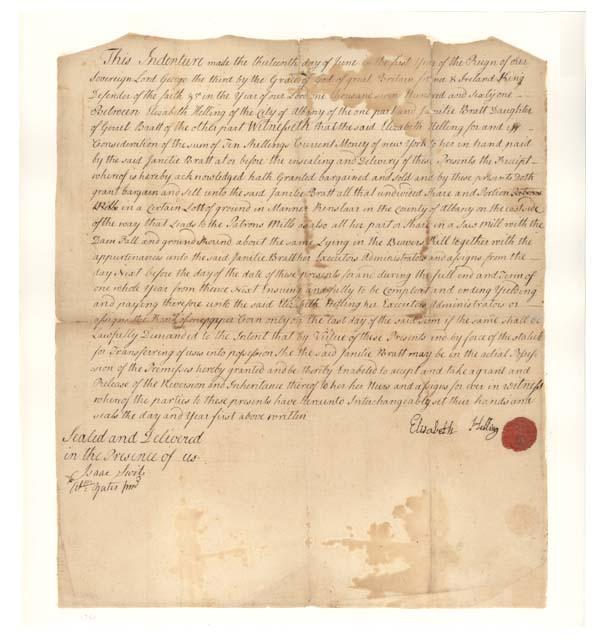 This Indenture made the thirteenth day of June in the first Year of the Reign of our
Sovereign Lord George the third by the Grace of God of great Britain france & Ireland King
Defender of the faith &c in the Year of our Lord one thousand seven Hundred and Sixty one
Between Elizabeth Helling of the City of Albany of the one part and Janitie Bratt Daughter
of Gerret Bratt of the other part Witnesseth that the said Elizabeth Helling for and in
Consideration of the sum of Ten Shillings Current Money of new York to her in hand paid
by the said Janitie Bratt at or before the ensealing and Delivery of these Presents the Receipt
whereof is hereby acknowledged hath Granted bargained and sold and by these presents Doth
grant bargain and Sell unto the said Janitie Bratt all that undivided Share and Portion
in a Certain Lott of ground in Mannor Renslaar in the County of albany on the east side
of the way that Leads to the Patrons Mills as also all her part or Share in a Saw Mill with the
Dam Fall and ground Around about the same Lying in the Beavers Kill together with the
appurtenances unto the said Janitie Bratt her Executors Administrators and assigns from the
day Next before the day of the date of these presents for and during the full end and Term of
one whole Year from thence Next Insuing and fully to be Compleat and ending Yielding
and paying therefore unto the said Elizabeth Helling her Executors Administrators or
assigns the Rent of one pepper Corn only on the last day of the said term if the same shall be
Lawfully Demanded to the Intent that by Virtue of these Presents and by force of the statute
for Transferring of uses into possession she the said Janitie Bratt may be in the actual Posses
sion of the Premises hereby granted and be thereby Enabled to accept and take a grant and
Release of the Reversion and Inheritance thereof to her her Heirs and assigns for ever in Witness
whereof the parties to these presents have hereunto Interchangeably set their hands and
seals the day and Year first above written
Elisabeth Helling
Sealed and Delivered
in the Presence of us
Isaac Swits
Yates Junr